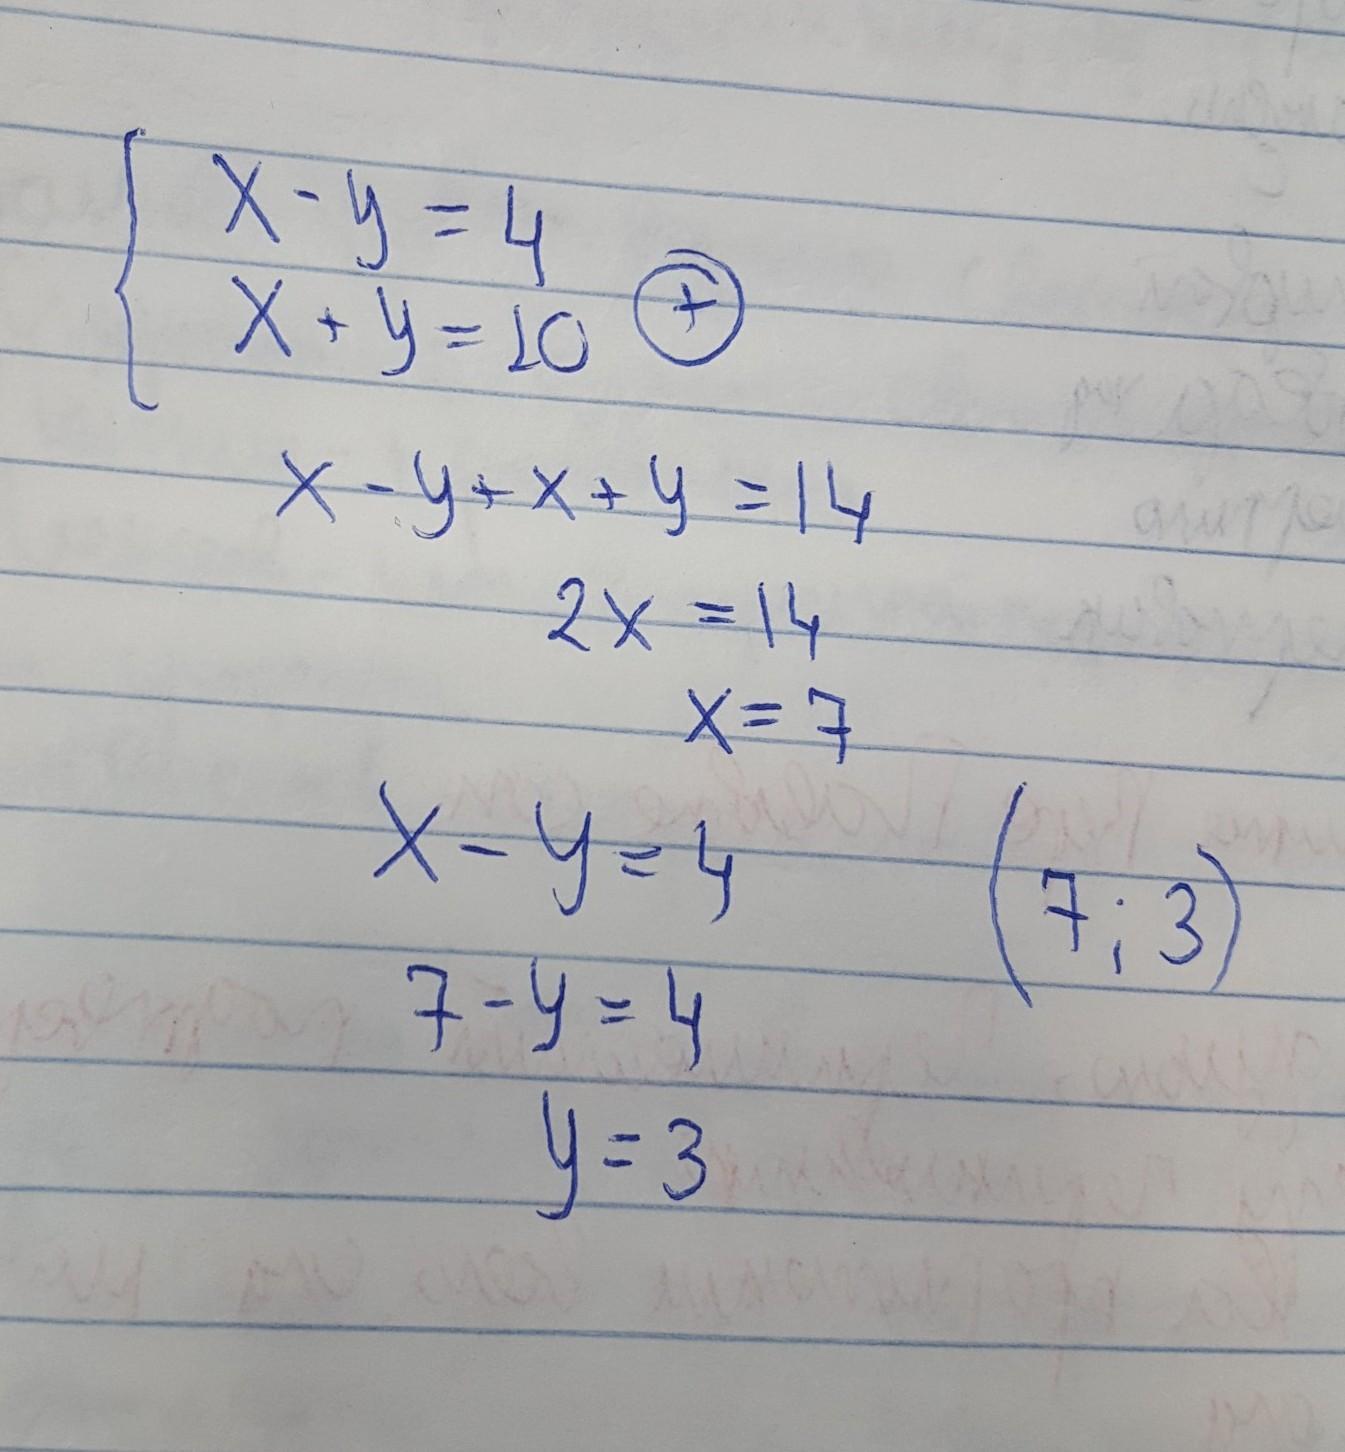 x - y = 4
x + y = 10 +
x - y + x + y = 14
2x = 14
x = 7
x - y = 4
(7; 3)
7 - y = 4
y = 3